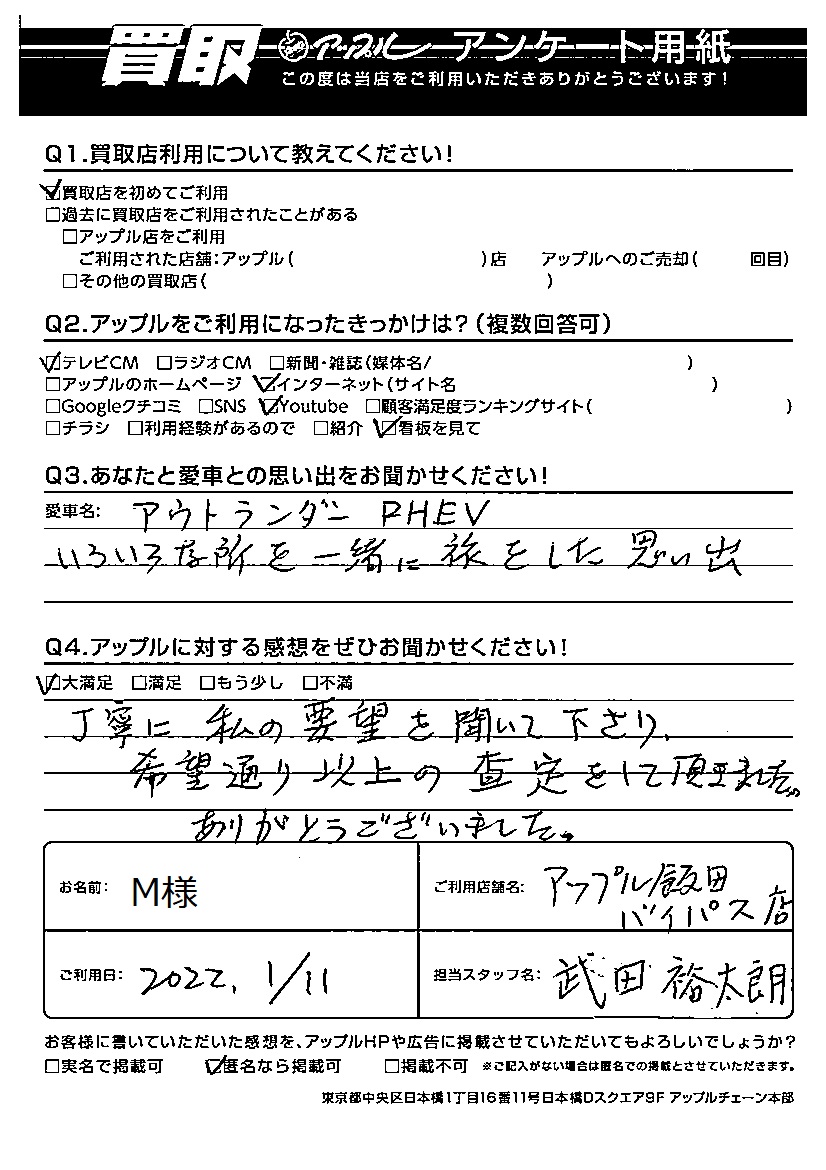 買取 アップル アンケート用紙
この度は当店をご利用いただきありがとうございます!
Q1.買取店利用について教えてください!
☑買取店を初めてご利用
□過去に買取店をご利用されたことがある
□アップル店をご利用
ご利用された店舗:アップル( )店 アップルへのご売却( 回目)
□その他の買取店( )
Q2.アップルをご利用になったきっかけは?(複数回答可)
☑テレビCM □ラジオCM □新聞・雑誌(媒体名/ )
□アップルのホームページ ☑インターネット(サイト名 )
□Googleクチコミ □SNS ☑Youtube □顧客満足度ランキングサイト( )
□チラシ □利用経験があるので □紹介 ☑看板を見て
Q3.あなたと愛車との思い出をお聞かせください!
愛車名: アウトランダー PHEV
いろいろな所を一緒に旅をした思い出
Q4.アップルに対する感想をぜひお聞かせください!
☑大満足 □満足 □もう少し □不満
丁寧に私の要望を聞いて下さり、
希望通り以上の査定をして頂きました。
ありがとうございました。
お名前: M様 ご利用店舗名: アップル飯田
バイパス店
ご利用日: 2022, 1/11 担当スタッフ名: 武田 裕太朗
お客様に書いていただいた感想を、アップルHPや広告に掲載させていただいてもよろしいでしょうか?
□実名で掲載可 ☑匿名なら掲載可 □掲載不可 ※ご記入がない場合は匿名での掲載とさせていただきます。
東京都中央区日本橋1丁目16番11号日本橋Dスクエア9F アップルチェーン本部